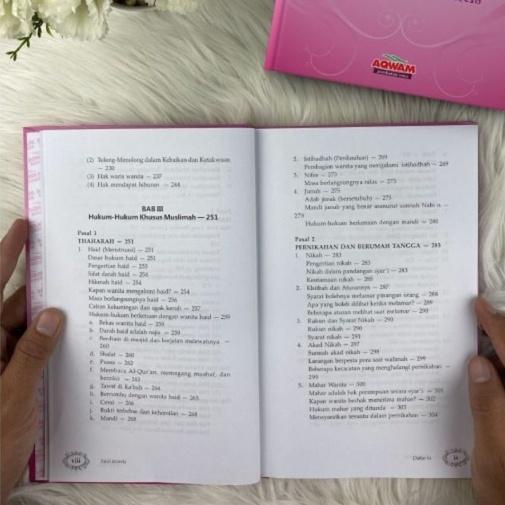 AQWAM
(2) Tolong-Menolong dalam Kebaikan dan Ketakwaan
— 230
(3) Hak waris wanita — 237
(4) Hak mendapat hiburan — 244
BAB III
Hukum-Hukum Khusus Muslimah — 251
Pasal 1
THAHARAH — 251
1. Haid (Menstruasi) — 251
Dasar hukum haid — 251
Pengertian haid — 253
Sifat darah haid — 254
Hikmah haid — 254
Kapan wanita mengalami haid? — 254
Masa berlangsungnya haid — 256
Cairan kekuningan dan agak keruh — 257
Hukum-hukum berkenaan dengan wanita haid — 259
a. Bekas wanita haid — 259
b. Darah haid adalah najis — 259
c. Berdiam di masjid dan berjalan melewatinya —
260
d. Shalat — 260
e. Puasa — 262
f. Membaca Al-Qur'an, memegang mushaf, dan
berzikir — 263
g. Tawaf di Ka'bah — 264
h. Bercumbu dengan wanita haid — 265
i. Cerai — 266
j. Bukti terbebas dari kehamilan — 268
k. Mandi — 268
viii
2. Istihadhah (Perdarahan) — 269
Pembagian wanita yang mengalami istihadhah — 269
3. Nifas — 273
Masa berlangsungnya nifas — 273
4. Junub — 275
Adab junub (bersetubuh) — 275
Mandi junub yang benar menurut sunnah Nabi —
279
Hukum-hukum berkenaan dengan mandi — 280
Pasal 2
PERNIKAHAN DAN BERUMAH TANGGA — 283
1. Nikah — 283
Pengertian nikah — 283
Nikah dalam pandangan syar'i — 283
Keutamaan nikah — 286
2. Khitbah dan Aturannya — 287
Syarat bolehnya melamar pinangan orang — 288
Apa yang boleh dilihat ketika melamar? — 289
Beberapa aturan melihat saat melamar — 290
3. Rukun dan Syarat Nikah — 290
Rukun nikah — 290
Syarat nikah — 291
4. Akad Nikah — 297
Sunnah akad nikah — 298
Larangan berpesta pora saat walimah — 299
Beberapa kecacatan yang menghalangi pernikahan —
299
5. Mahar Wanita — 300
Mahar adalah hak perempuan secara syar'i — 301
Kapan wanita berhak menerima mahar? — 302
Hukum mahar yang ditunda — 303
Mensyaratkan sesuatu dalam pernikahan — 304
Daftar Isi
ix